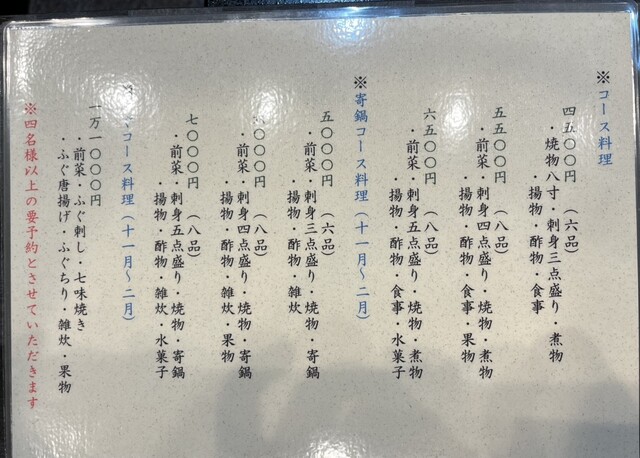 ※コース料理
四五〇〇円 （六品）
・焼物八寸・刺身三点盛り・煮物
・揚物・酢物・食事
五五〇〇円 （八品）
・前菜・刺身四点盛り・焼物・煮物
・揚物・酢物・食事・果物
六五〇〇円 （八品）
・前菜・刺身五点盛り・焼物・煮物
・揚物・酢物・食事・水菓子
※寄鍋コース料理（十一月～二月）
五〇〇〇円 （六品）
・前菜・刺身三点盛り・焼物・寄鍋
・揚物・酢物・雑炊
〇〇〇円 （八品）
・前菜・刺身四点盛り・焼物・寄鍋
・揚物・酢物・雑炊・果物
七〇〇〇円 （八品）
・前菜・刺身五点盛り・焼物・寄鍋
・揚物・酢物・雑炊・水菓子
コース料理（十一月～二月）
一万一〇〇〇円
・前菜・ふぐ刺し・七味焼き
・ふぐ唐揚げ・ふぐちり・雑炊・果物
※四名様以上の要予約とさせていただきます